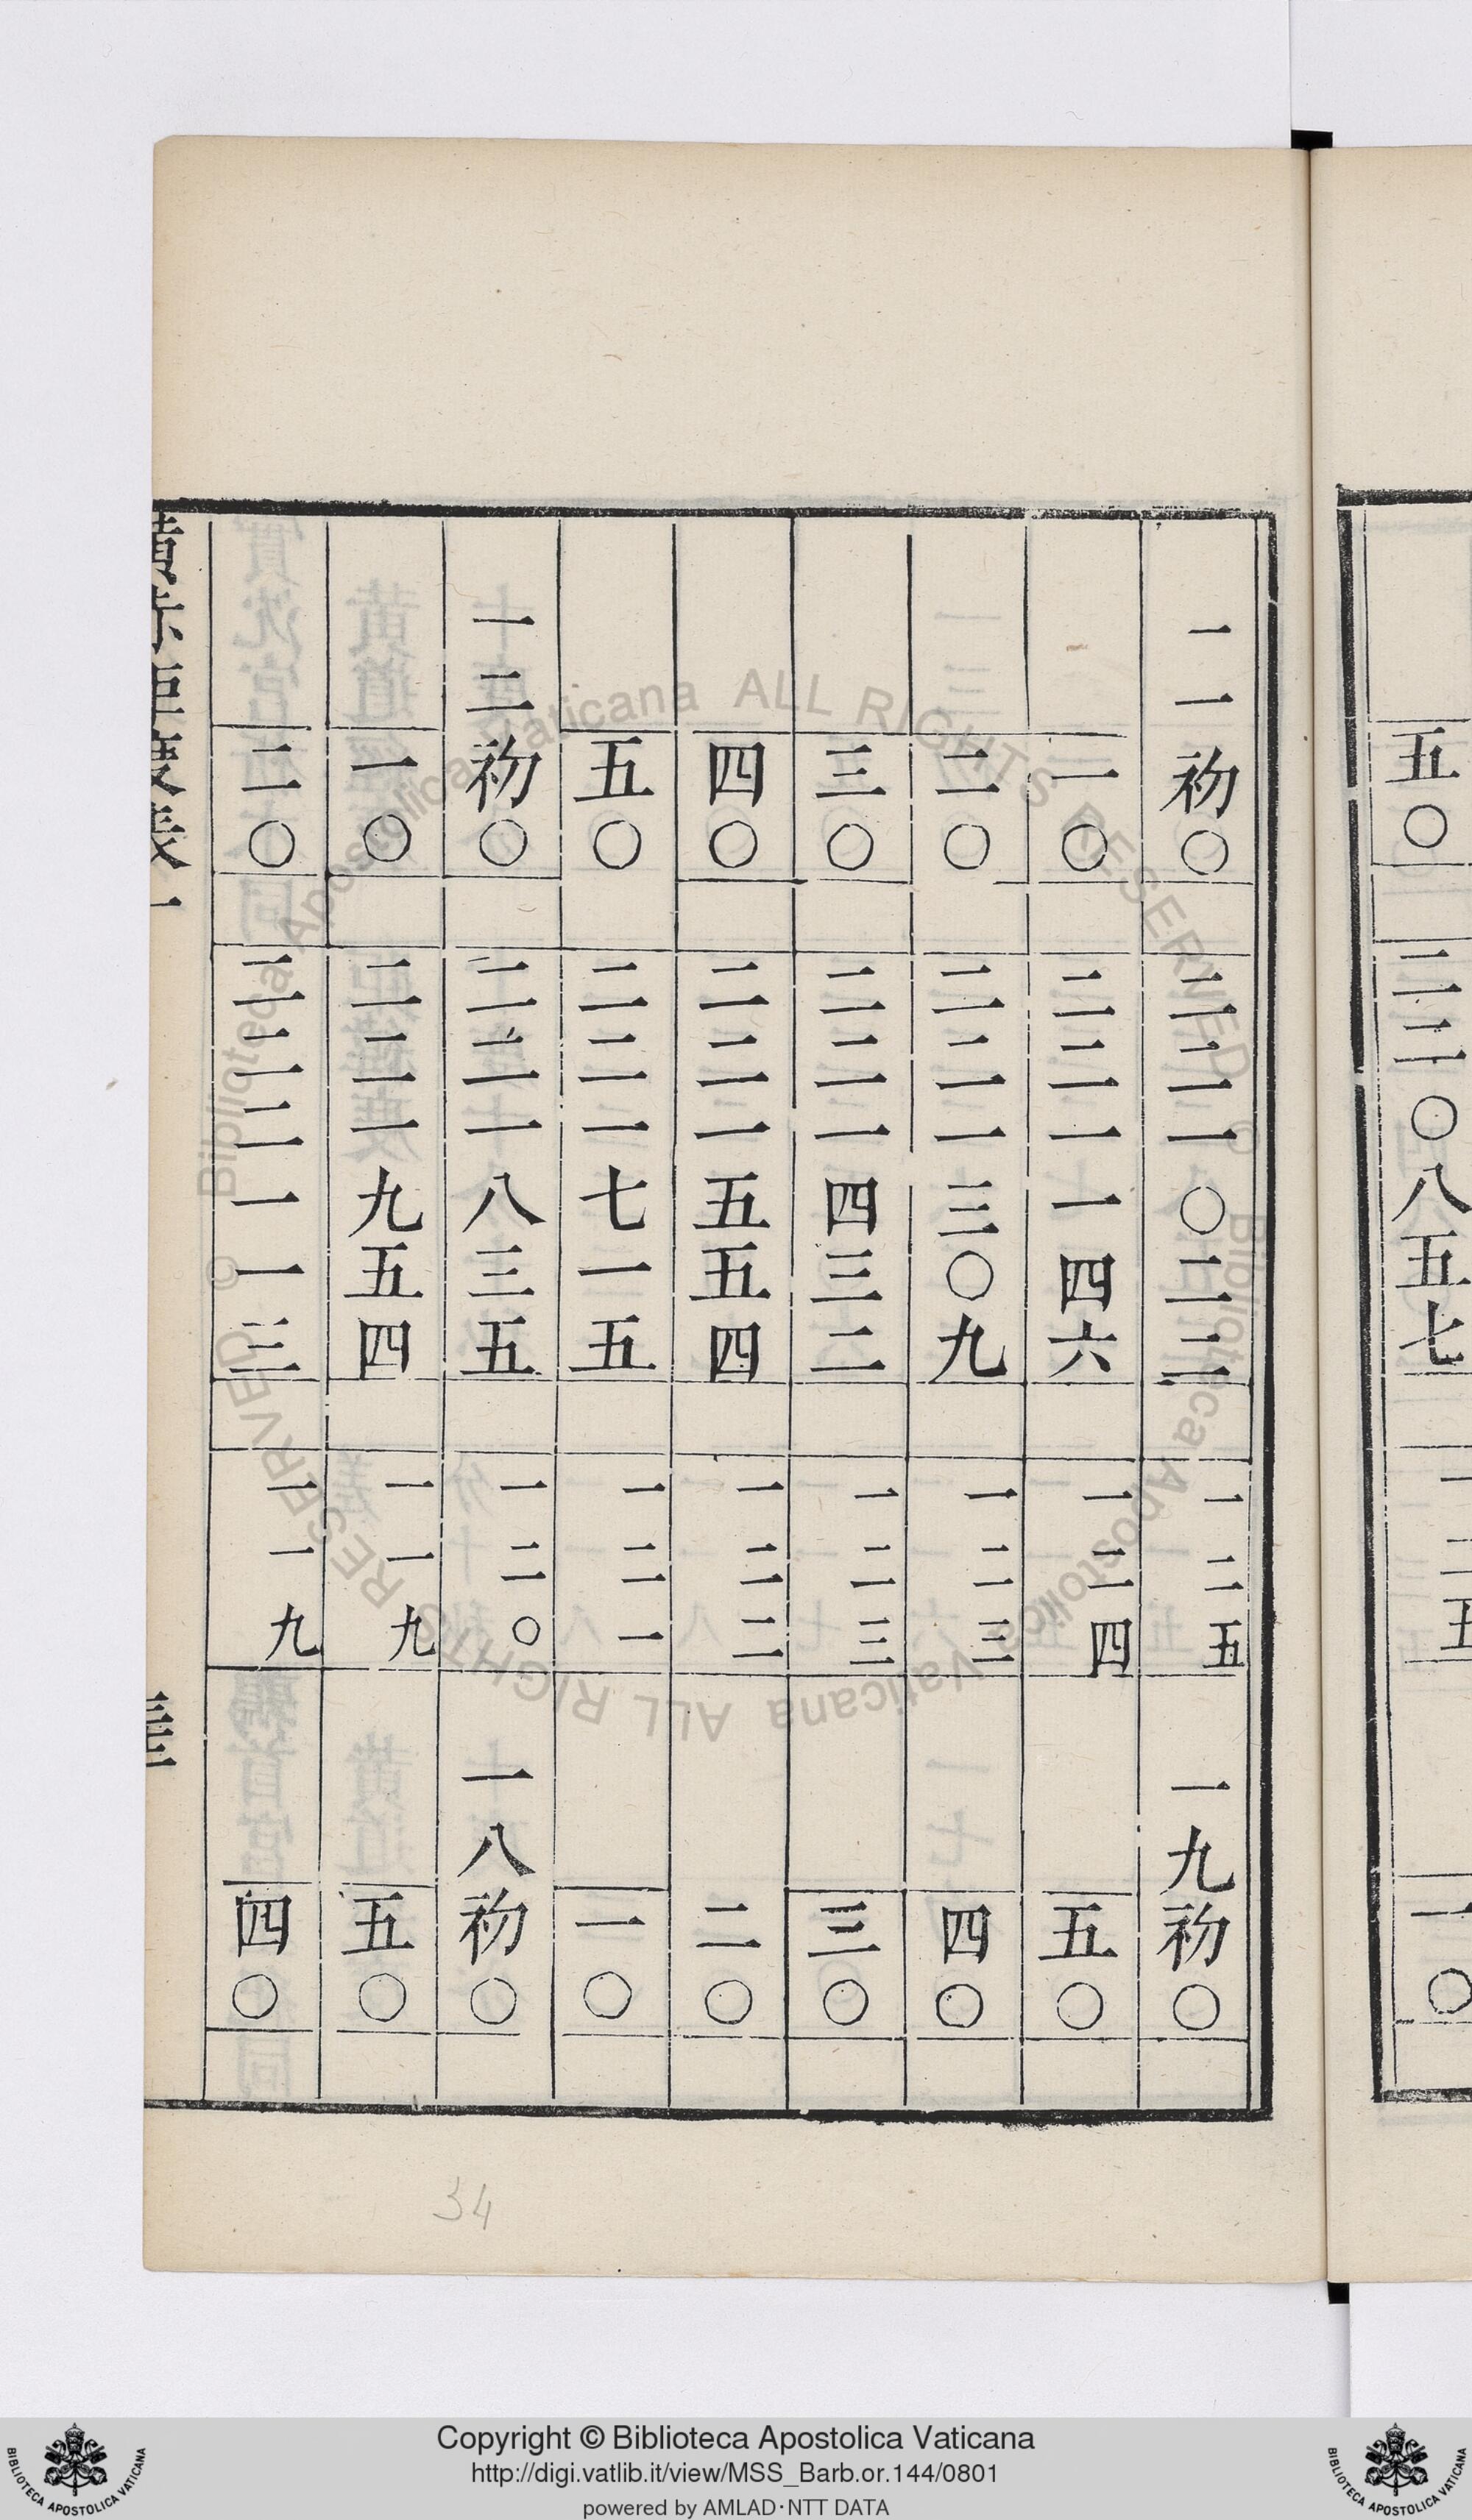 五〇 二二〇八五七 一二五 一〇
一一初〇 二二一〇二二 一二五 一九初〇
一〇 二二一一四六 一二四 五〇
二〇 二二一三〇九 一二三 四〇
三〇 二二一四三二 一二三 三〇
四〇 二二一五五四 一二二 二〇
五〇 二二一七一五 一二一 一〇
一二初〇 二二一八三五 一二〇 一八初〇
一〇 二二一九五四 一一九 五〇
二〇 二二二一一三 一一九 四〇
34
© Biblioteca Apostolica Vaticana ALL RIGHTS RESERVED
© Biblioteca Apostolica Vaticana ALL RIGHTS RESERVED
Copyright © Biblioteca Apostolica Vaticana
http://digi.vatlib.it/view/MSS_Barb.or.144/0801
powered by AMLAD·NTT DATA
BIBLIOTECA APOSTOLICA VATICANA
BIBLIOTECA APOSTOLICA VATICANA